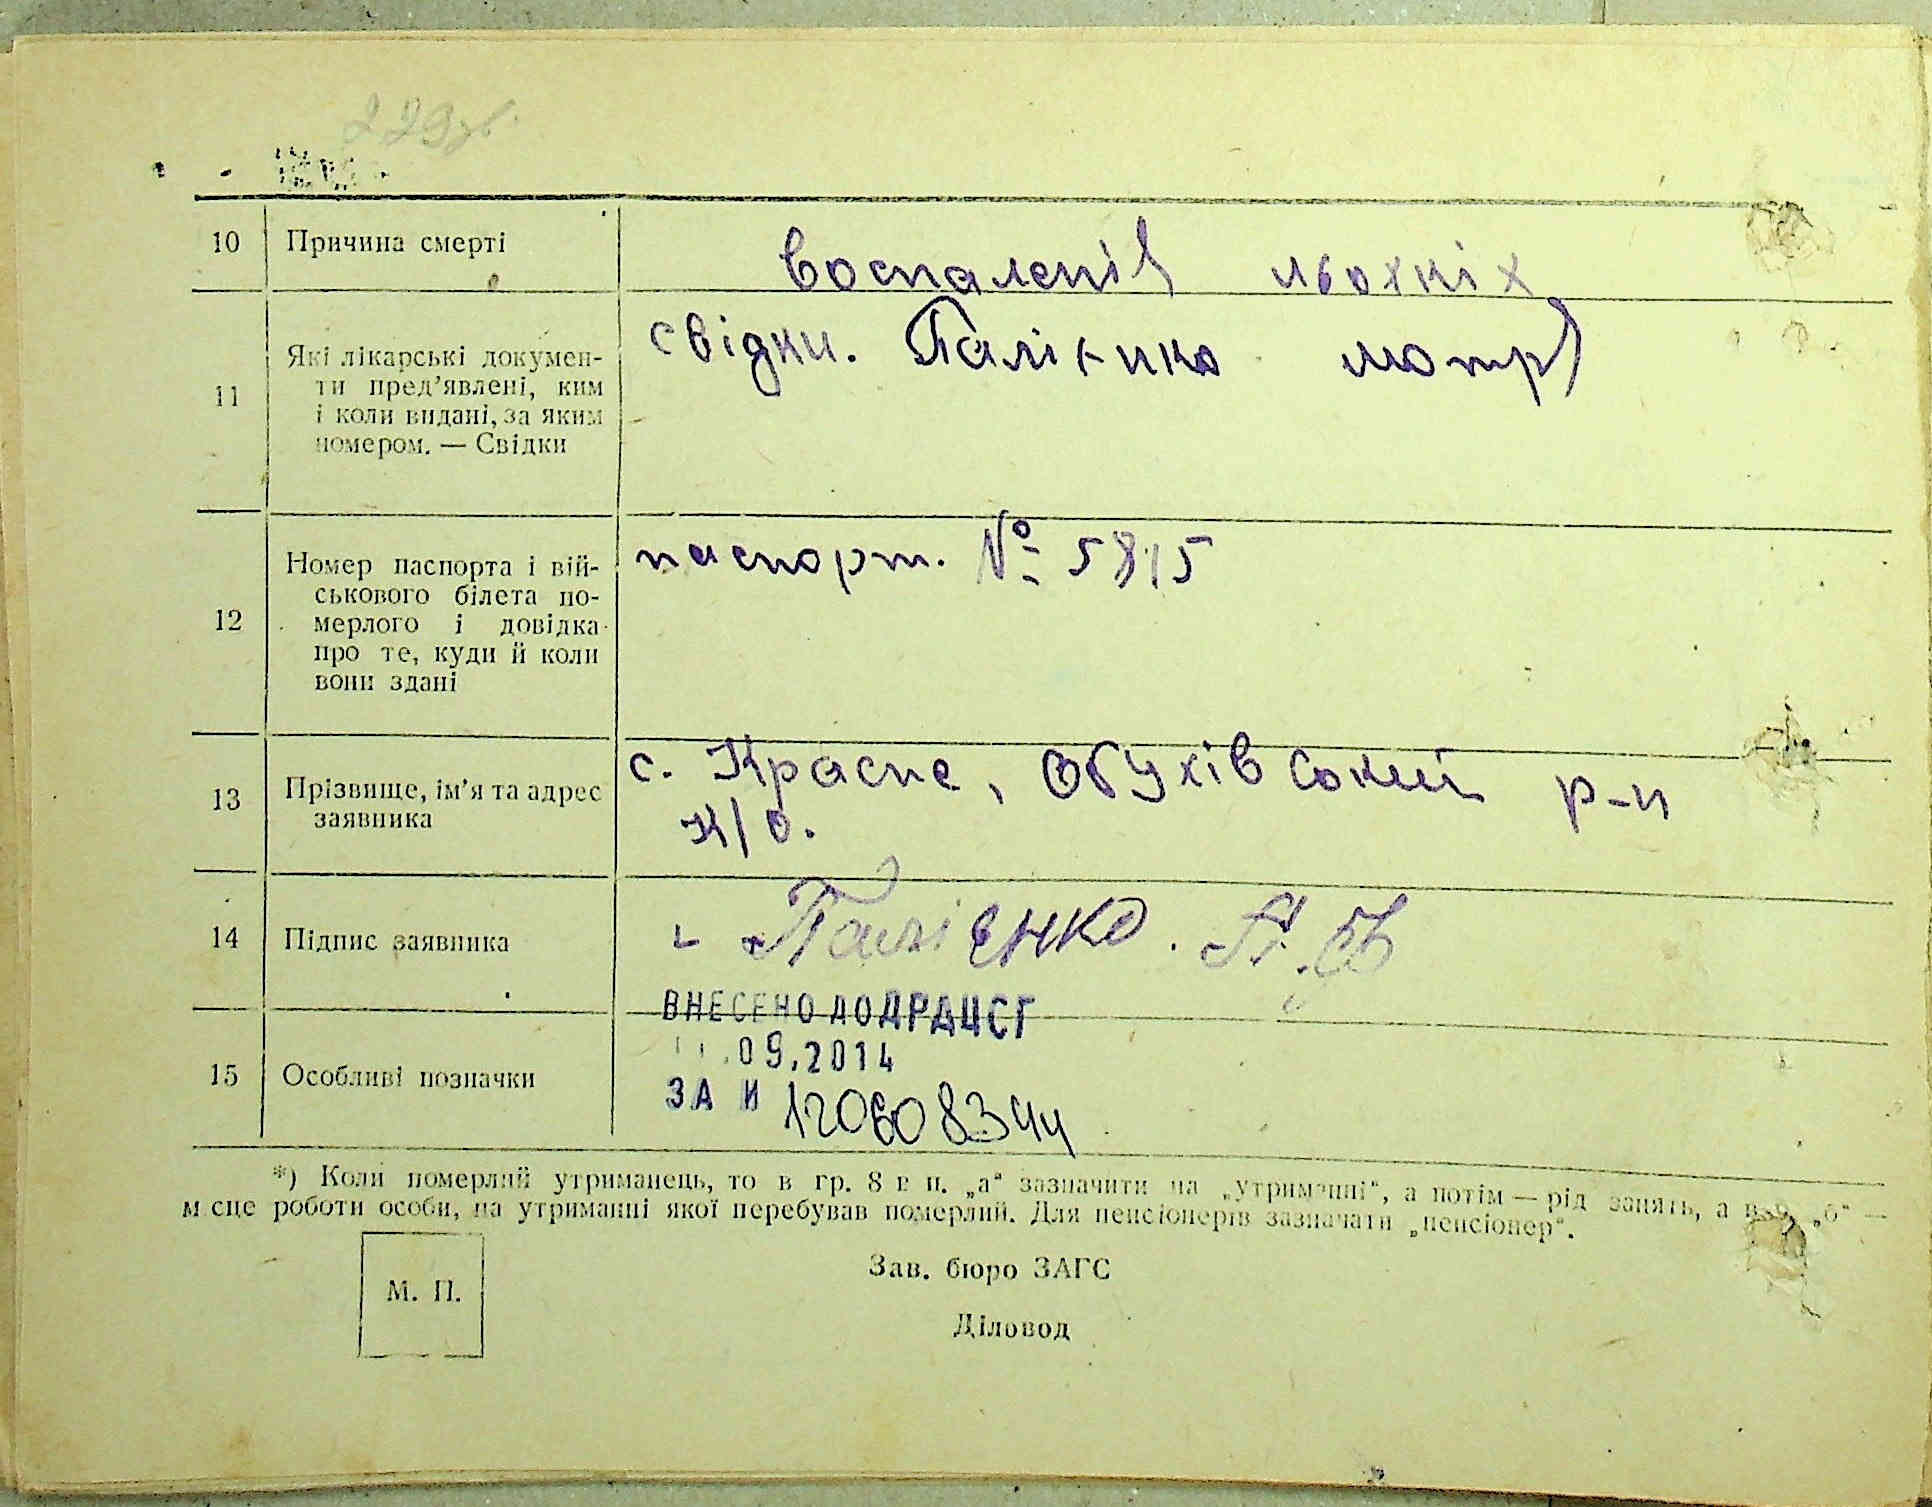 229зв.
10 Причина смерті воспаленія льохкіх
11 Які лікарські докумен-
ти пред'явлені, ким
і коли видані, за яким
номером. — Свідки
свідки. Мотря
12 Номер паспорта і вій-
ськового білета по-
мерлого і довідка
про те, куди й коли
вони здані
паспорт. № 5815
13 Прізвище, ім'я та адрес
заявника
с. Красне, Обухівський р-н
К/о.
14 Підпис заявника Палієнко. П.
ВНЕСЕНО ДО ДРАЦСГ
.09.2014
15 Особливі позначки
ЗА И 120608344
*) Коли померлий утриманець, то в гр. 8 в п. „а" зазначити на „утриманні", а потім — рід занять, а в „б" —
м сце роботи особи, на утриманні якої перебував померлий. Для пенсіонерів зазначати „пенсіонер".
М. П.
Зав. бюро ЗАГС
Діловод